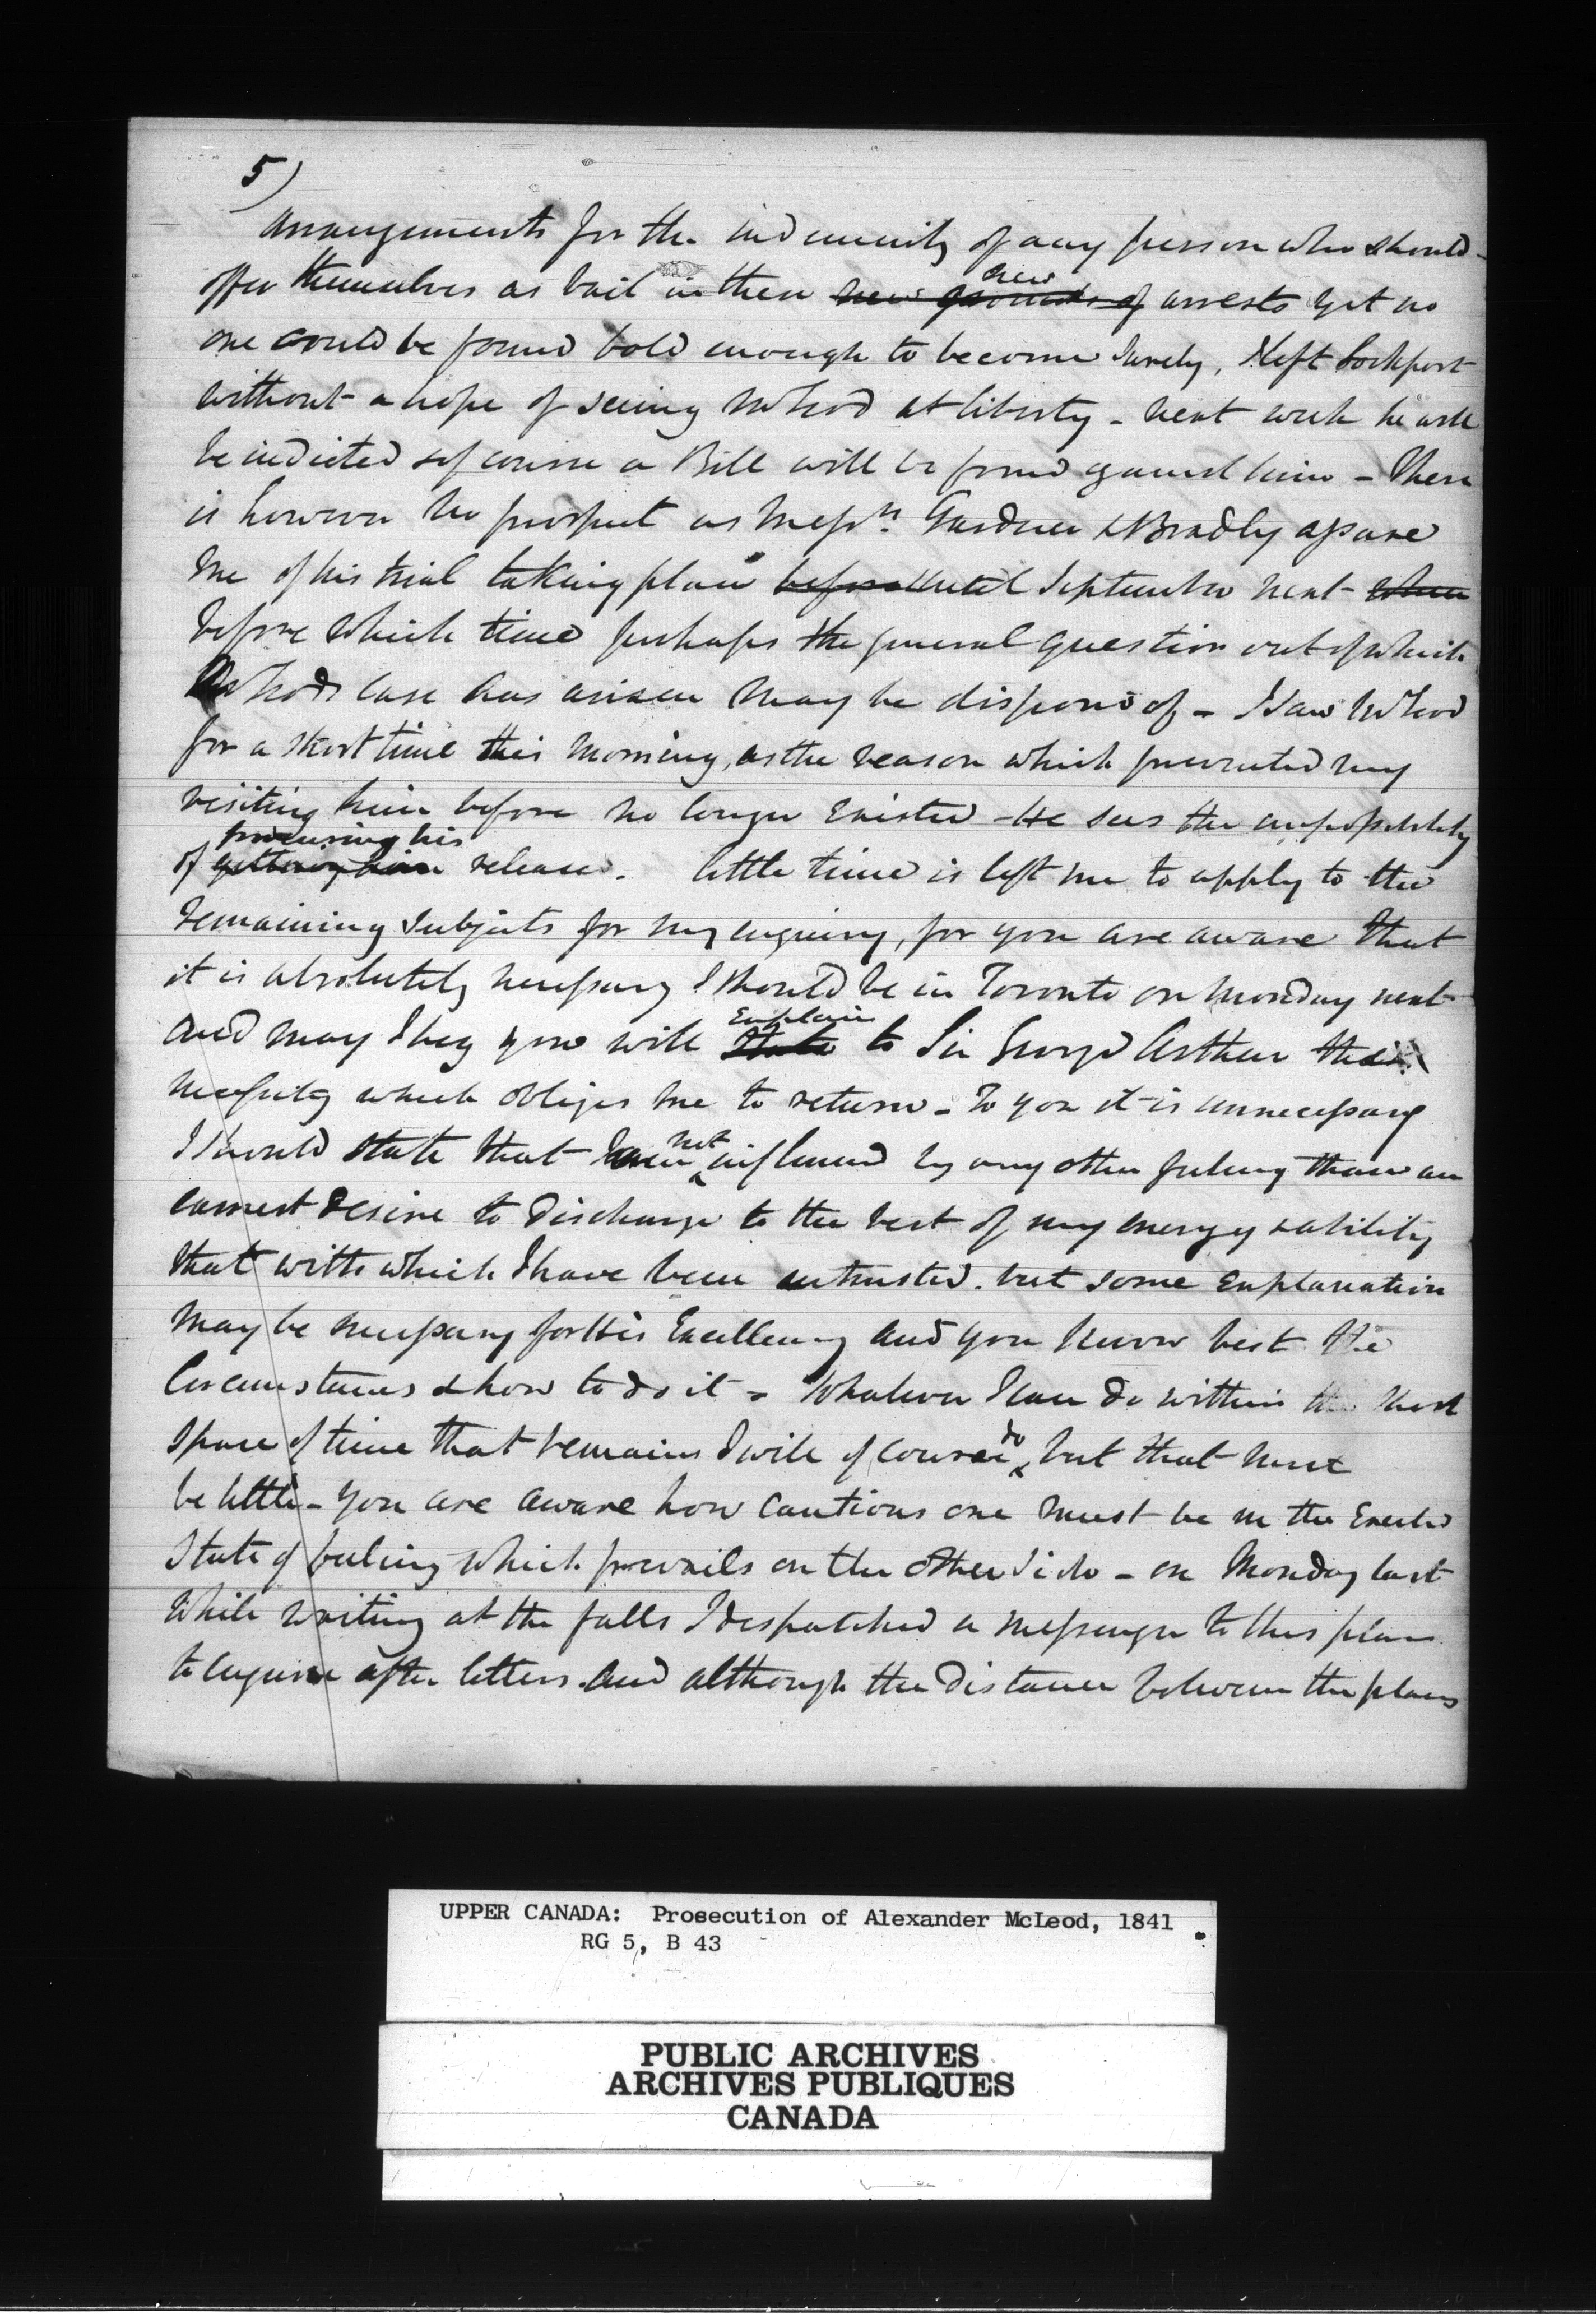 5)
Arrangements for the indemnity of any person who should
offer themselves as bail in these new grounds of new arrests yet no
one could be found bold enough to become surety, I left Lockport
without a hope of seeing McLeod at liberty - next week he will
be indicted & of course a Bill will be found against him - There
is however no prospect as Messrs. Gardner & Bradly assure
me of his trial taking place before until September next when
before which time perhaps the general question out of which
McLeods case has arisen may be disposed of - I saw McLeod
for a short time this morning, as the reason which prevented my
visiting him before no longer existed - He sees the impossibility
of getting him procuring his release. little time is left me to apply to the
remaining subjects for my enquiry, for you are aware that
it is absolutely necessary I should be in Toronto on Monday next
and may I beg you will state Explain to Sir George Arthur the
necessity which obliges me to return - To you it is unnecessary
I should state that I am not influenced by any other feeling than an
earnest desire to discharge to the best of my energy & ability
that with which I have been entrusted. but some explanation
may be necessary for His Excellency and you know best the
Circumstances & how to do it - Whatever I can do within the short
space of time that remains I will of course do, but that must
be little - you are aware how cautious one must be in the Excited
State of feeling which prevails on the other side - on Monday last
while writing at the falls I despatched a messenger to this place
to enquire after letters. And although the distance between the places
UPPER CANADA: Prosecution of Alexander McLeod, 1841
RG 5, B 43
PUBLIC ARCHIVES
ARCHIVES PUBLIQUES
CANADA